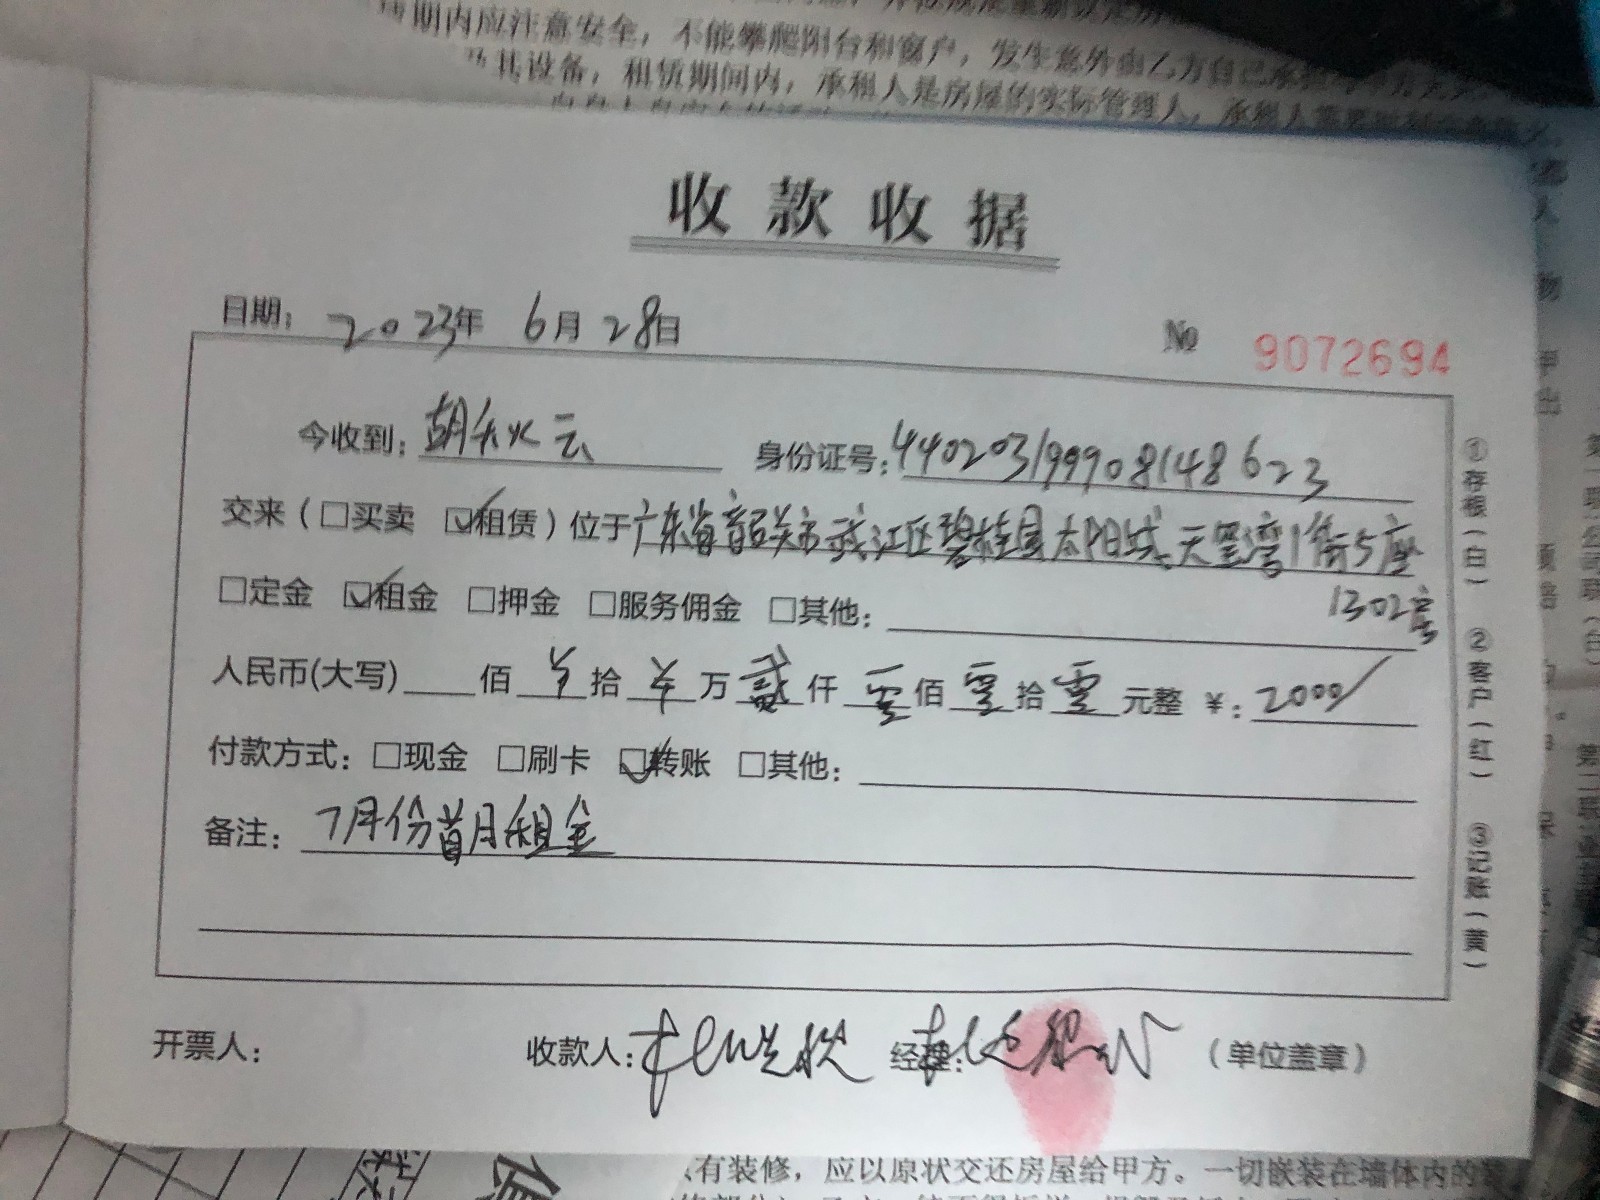 期内应注意安全，不能攀爬阳台和窗户，发生意外由乙方自己承担
及其设备，租赁期间内，承租人是房屋的实际管理人，承租人
收款收据
日期：2023年 6月28日
№ 9072694
今收到：胡秋云 身份证号：440203199908148623
交来（□买卖 ☑租赁）位于广东省韶关市武江区碧桂园太阳城天玺湾1街5座
1302房
□定金 ☑租金 □押金 □服务佣金 □其他：
人民币(大写) 佰 羊 拾 羊 万 贰 仟 零 佰 零 拾 零 元整 ¥：2000/
付款方式：□现金 □刷卡 ☑转账 □其他：
备注：7月份首月租金
开票人： 收款人： 经理： （单位盖章）
①存根（白）
②客户（红）
③记账（黄）
有装修，应以原状交还房屋给甲方。一切嵌装在墙体内的装